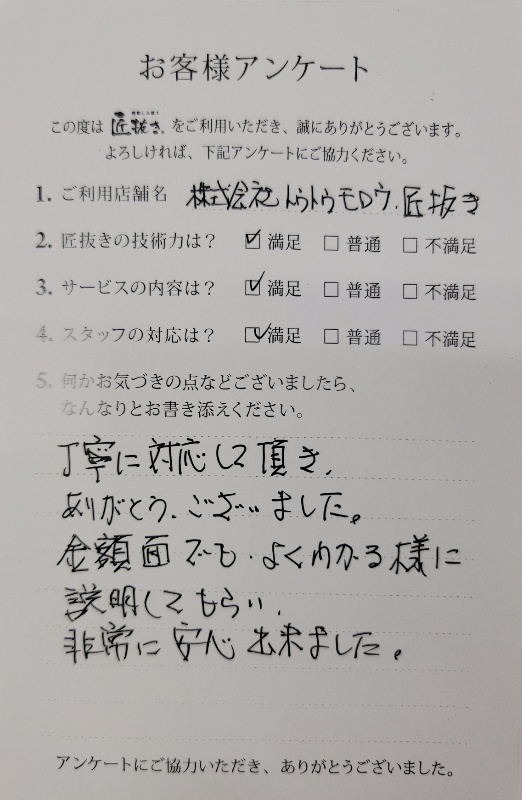 お客様アンケート
この度は 匠抜き をご利用いただき、誠にありがとうございます。
よろしければ、下記アンケートにご協力ください。
1. ご利用店舗名 株式会社トゥトゥモロウ.匠抜き
2. 匠抜きの技術力は? ☑ 満足 □ 普通 □ 不満足
3. サービスの内容は? ☑ 満足 □ 普通 □ 不満足
4. スタッフの対応は? ☑ 満足 □ 普通 □ 不満足
5. 何かお気づきの点などございましたら、
なんなりとお書き添えください。
丁寧に対応して頂き、
ありがとう、ございました。
金額面でも、よくわかる様に
説明してもらい、
非常に安心出来ました。
アンケートにご協力いただき、ありがとうございました。